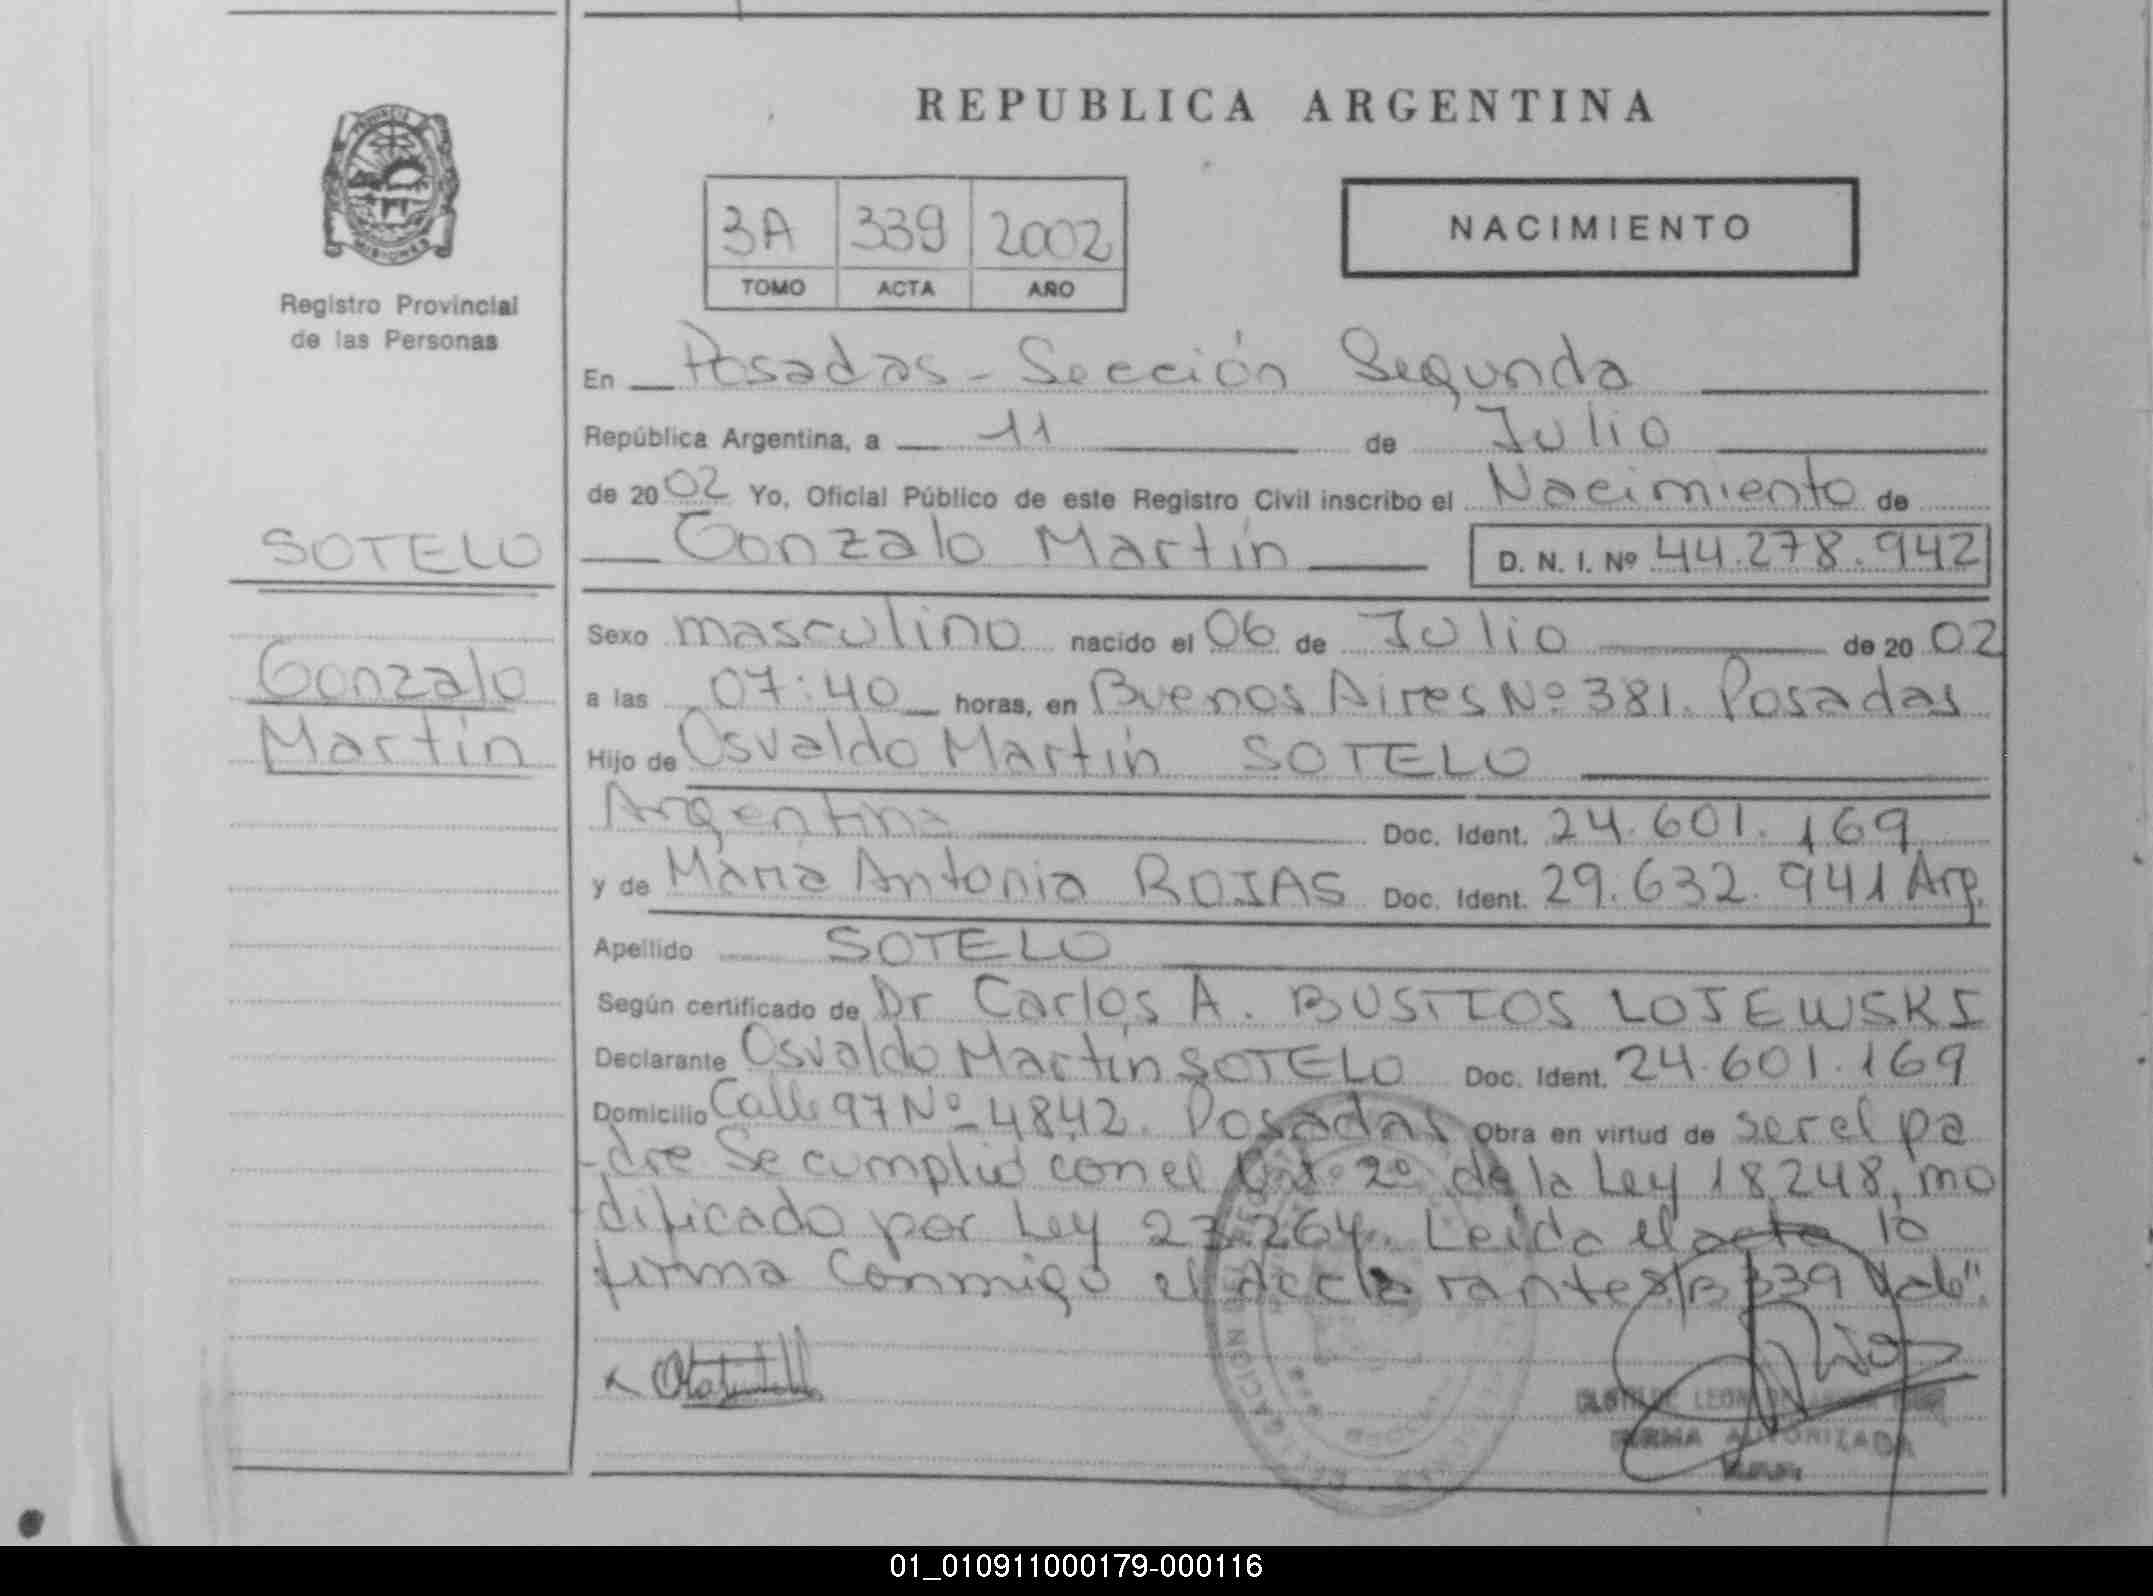 REPUBLICA ARGENTINA
3A 339 2002
TOMO ACTA AÑO
NACIMIENTO
Registro Provincial
de las Personas
SOTELO
Gonzalo
Martín
En Posadas - Sección Segunda
República Argentina, a 11 de Julio
de 2002 Yo, Oficial Público de este Registro Civil inscribo el Nacimiento de
Gonzalo Martín D. N. I. Nº 44.278.942
Sexo masculino nacido el 06 de Julio de 2002
a las 07:40 horas, en Buenos Aires Nº 381. Posadas
Hijo de Osvaldo Martín SOTELO
Argentina Doc. Ident. 24.601.169
y de María Antonia ROJAS Doc. Ident. 29.632.941 Arg.
Apellido SOTELO
Según certificado de Dr Carlos A. BUSTTOS LOJEWSKI
Declarante Osvaldo Martín SOTELO Doc. Ident. 24.601.169
Domicilio Calle 97 Nº 4842. Posadas Obra en virtud de ser el pa
dre Se cumplió con el Art. 2º de la Ley 18.248, mo
dificado por Ley 23.264. Leída el acta la
firma conmigo el declarante s/B 339 Vale".
FIRMA AUTORIZADA
01_010911000179-000116